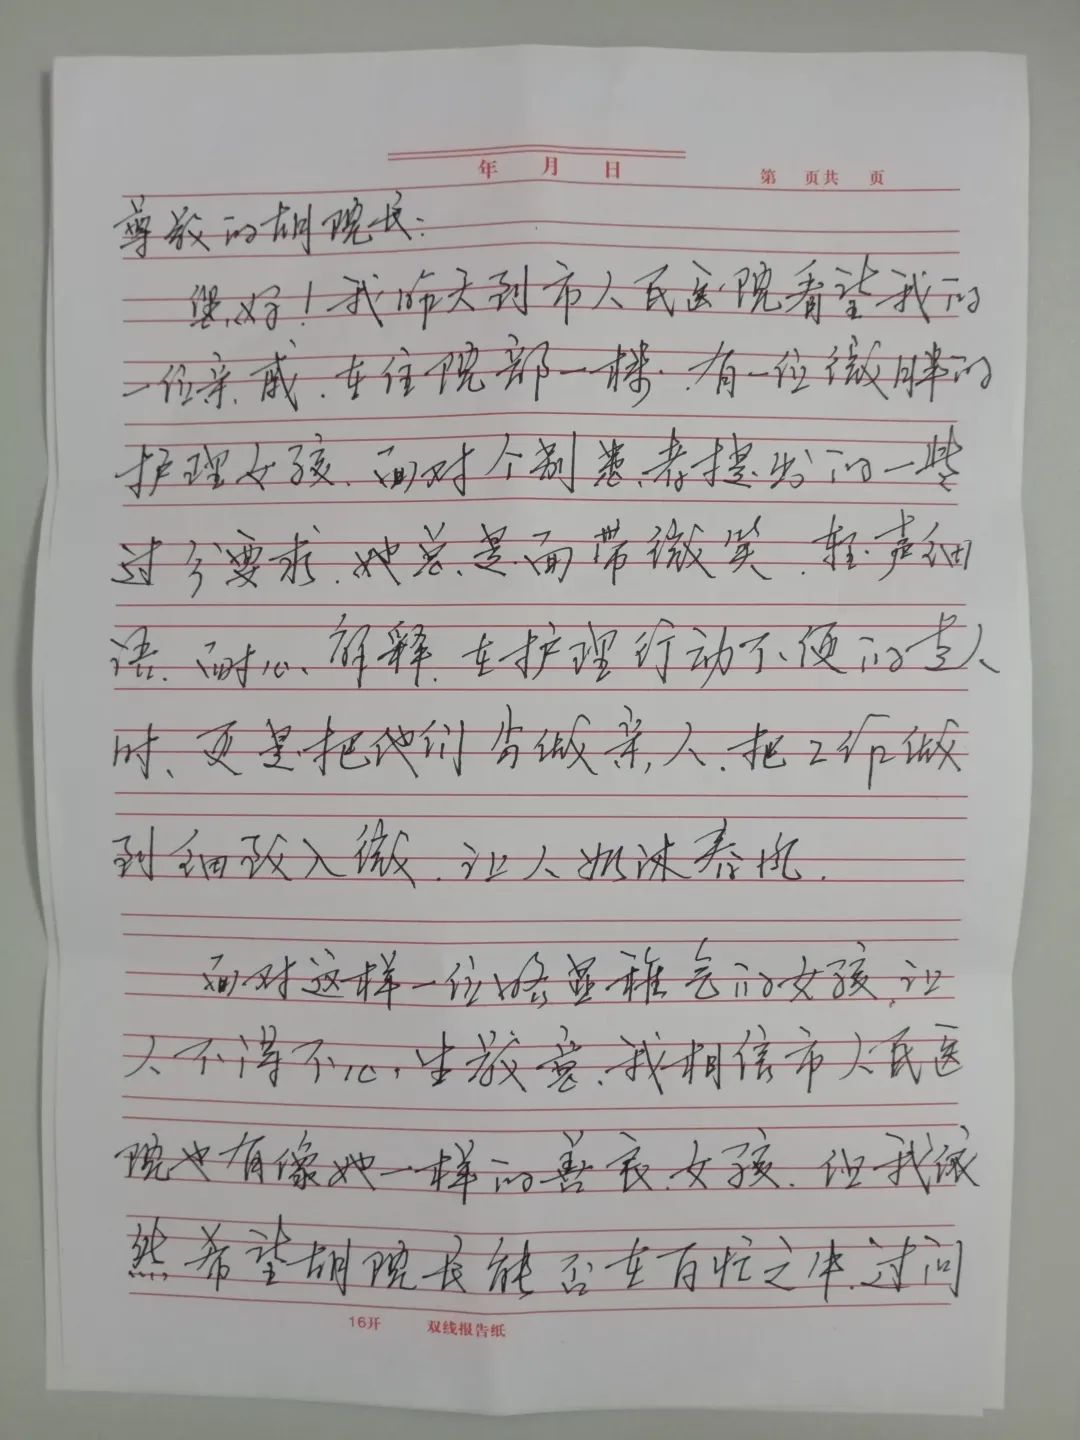 年 月 日
第 页共 页
尊敬的胡院长:
您好!我昨天到市人民医院看望我的
一位亲戚.在住院部一楼.有一位微胖的
护理女孩.面对个别患者提出的一些
过分要求.她总是面带微笑.轻声细
语.耐心解释.在护理行动不便的老人
时、更是把他们当做亲人.把工作做
到细致入微.让人如沐春风.
面对这样一位略显稚气的女孩.让
人不得不心生敬意.我相信市人民医
院也有像她一样的善良女孩.但我依
然希望胡院长能否在百忙之中.过问
16开 双线报告纸